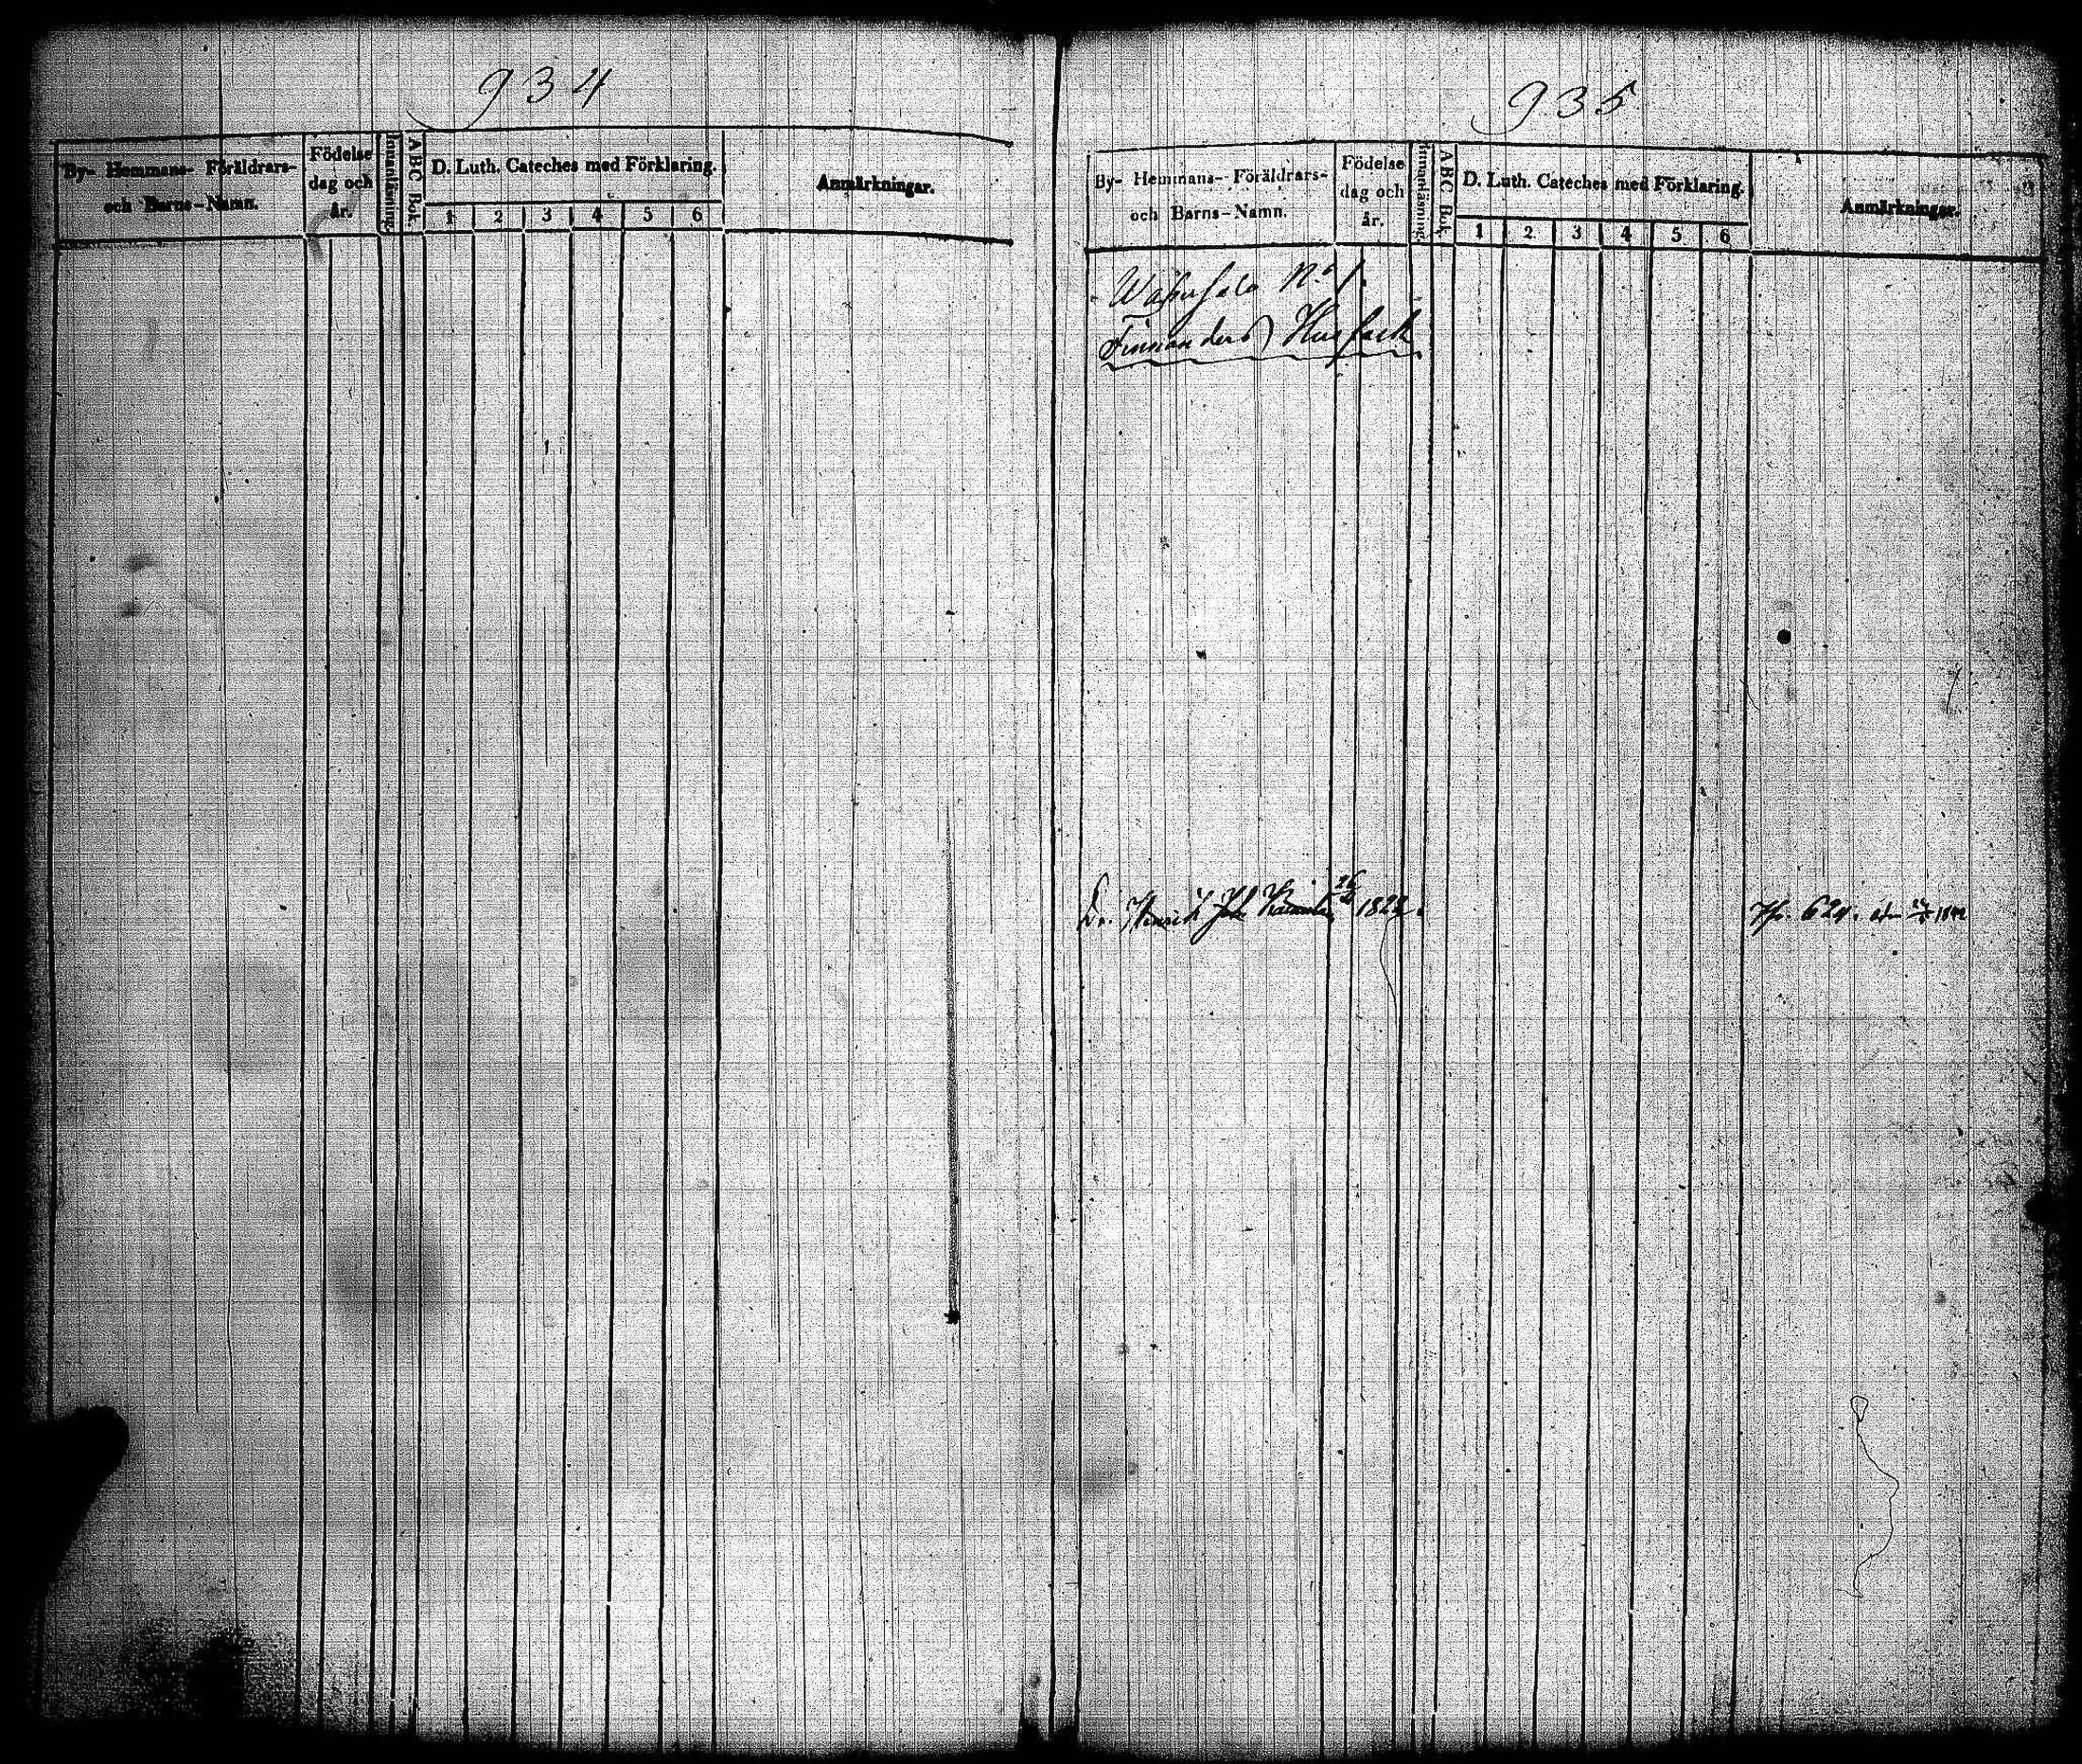 934
By- Hemmans- Föräldrars-
och Barns-Namn.
Födelse
dag och
år.
Innanläsning.
ABC Bok.
D. Luth. Cateches med Förklaring.
1 2 3 4 5 6
Anmärkningar.
935
By- Hemmans- Föräldrars-
och Barns-Namn.
Födelse
dag och
år.
Innanläsning.
ABC Bok.
D. Luth. Cateches med Förklaring.
1 2 3 4 5 6
Anmärkningar.
No 1.
Finnanders Husfolk
Dr. Henrik Joh. 1822.